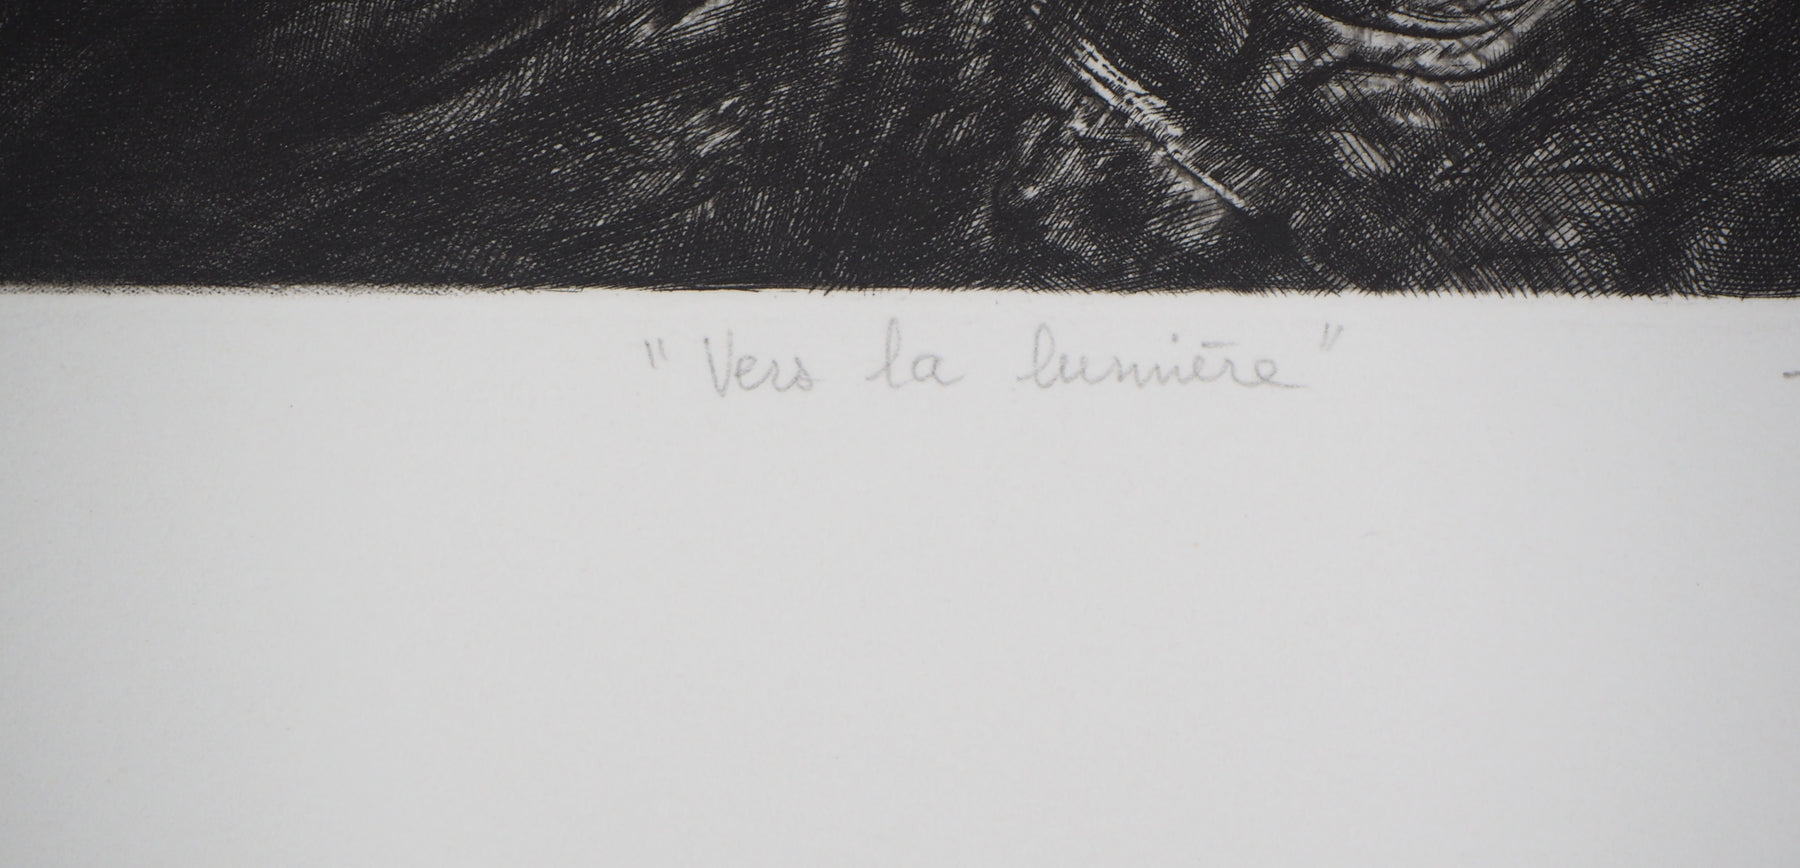 "Vers la lumière"